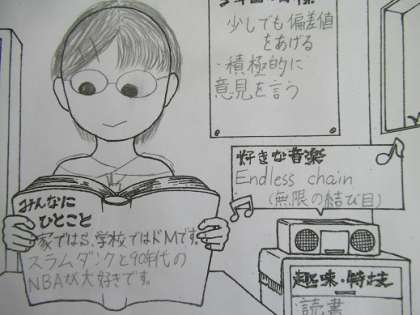 少しでも偏差値
をあげる
・積極的に
意見を言う
好きな音楽
Endless chain
(無限の結び目)
みんなに
ひとこと
家ではS、学校ではドMです。
スラムダンクと90年代の
NBAが大好きです。
趣味・特技
読書